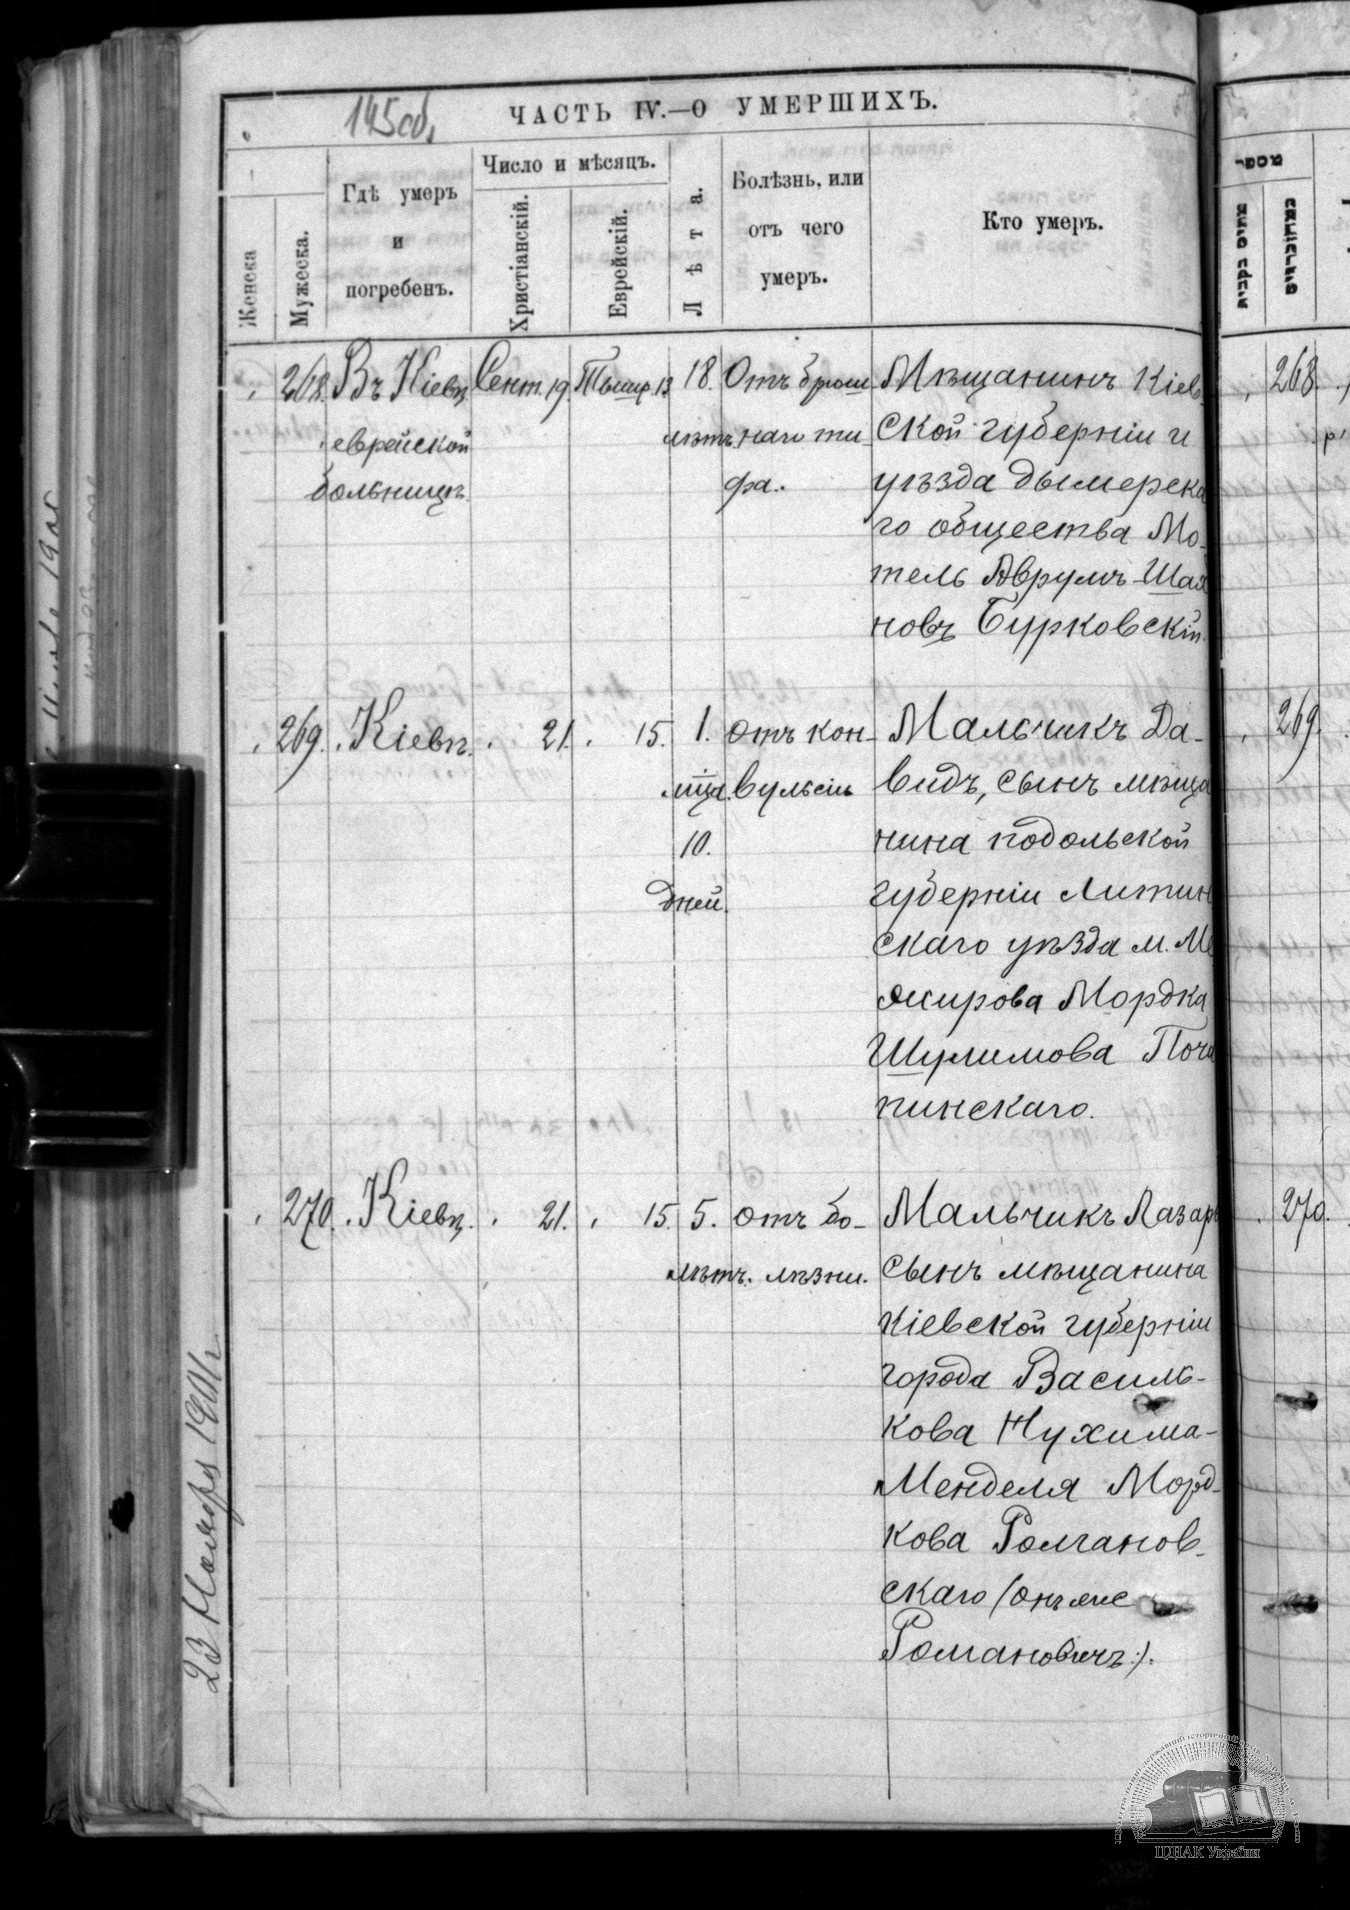 145об.
ЧАСТЬ IV.—О УМЕРШИХЪ.
Женска
Мужеска.
Гдѣ умеръ
и
погребенъ.
Число и мѣсяцъ.
Христіанскій.
Еврейскій.
Лѣта.
Болѣзнь, или
отъ чего
умеръ.
Кто умеръ.
268. Въ Кіевѣ
еврейской
больницѣ.
Сент. 19.
Тышр. 13
18.
лѣтъ.
Отъ брюш
наго ти
фа.
Мѣщанинъ Кіев-
ской губерніи и
уѣзда дымерска
го общества Мо-
тель Аврумъ-Шая
новъ Бурковскій.
268.
269. Кіевѣ.
21.
15.
1.
мца.
10.
дней.
отъ кон-
вульсіи
Мальчикъ Да-
видъ, сынъ мѣща
нина подольской
губерніи Литин
скаго уѣзда м. Ме
жирова Мордка
Шулимова Поча
пинскаго.
269.
270. Кіевѣ.
21.
15.
5.
лѣтъ.
отъ бо-
лѣзни.
Мальчикъ Лазарь
сынъ мѣщанина
Кіевской губерніи
города Василь-
кова Нухима-
Менделя Морд-
кова Романов-
скаго (онъ же
Романовичъ).
270.
23 Ноября 1901г.
ЦДІАК України